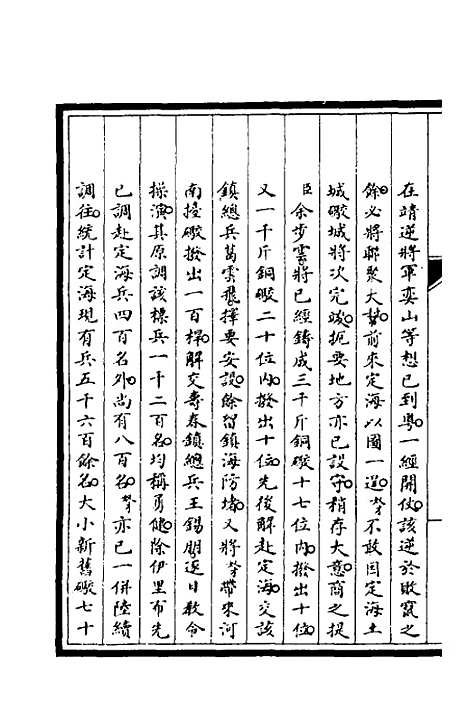 在靖逆將軍奕山等想已到粵一經開仗該逆於敗竄之
餘必將聯聚大艘前來定海以圖一逞奴才不敢因定海土
城礮城將次完竣扼要地方亦已設守稍存大意商之提
臣余步雲將已經鑄成三千斤銅礮十七位內撥出十位
又一千斤銅礮二十位內撥出十位先後解赴定海交該
鎮總兵葛雲飛擇要安設餘留鎮海防堵又將奴才帶來河
南擡礮撥出一百桿解交壽春鎮總兵王錫朋逐日教令
操演其原調該標兵一千二百名均稱勇健除伊里布先
已調赴定海兵四百名外尚有八百名奴才亦已一併陸續
調往統計定海現有兵五千六百餘名大小新舊礮七十